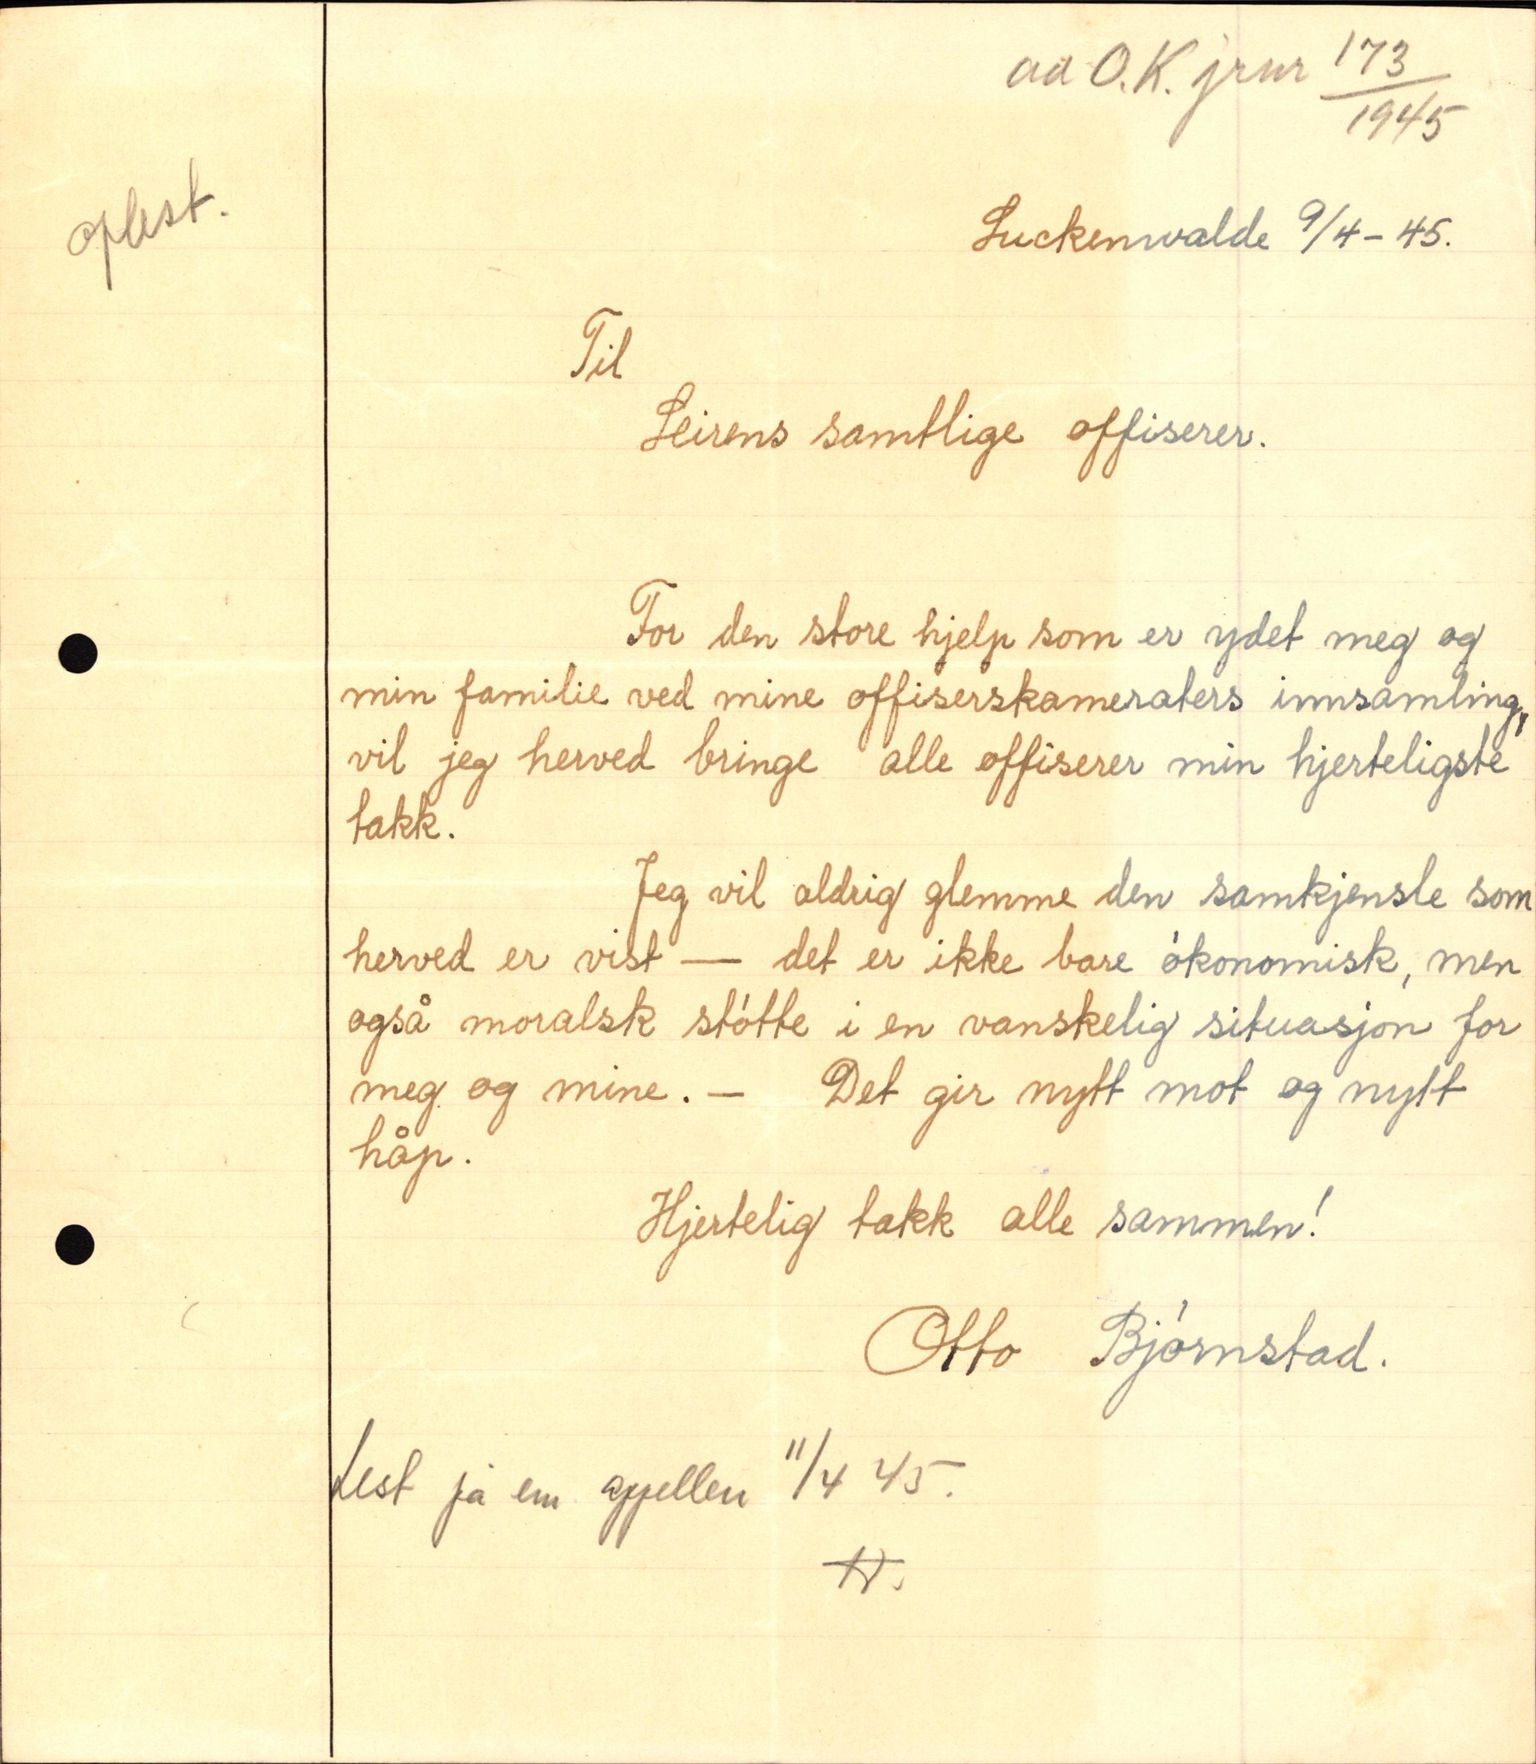 ad O.K. jrnr 173/1945
oplest.
Luckenwalde 9/4-45.
Til
Leirens samtlige offiserer.
For den store hjelp som er ydet meg og
min familie ved mine offiserskameraters innsamling,
vil jeg herved bringe alle offiserer min hjerteligste
takk.
Jeg vil aldrig glemme den samkjensle som
herved er vist — det er ikke bare økonomisk, men
også moralsk støtte i en vanskelig situasjon for
meg og mine. — Det gir nytt mot og nytt
håp.
Hjertelig takk alle sammen!
Otto Bjørnstad.
Lest på em appellen 11/4 45.